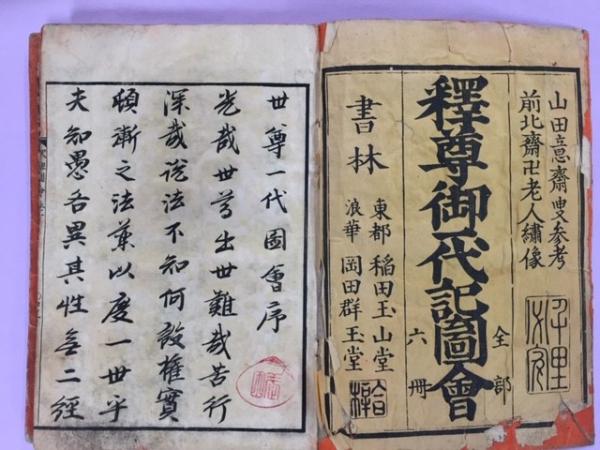 山田意齋叟参考
前北齋卍老人繡像
釋尊御一代記圖會
全部
六冊
書林
東都 稲田玉山堂
浪華 岡田群玉堂
世尊一代圖會序
光哉世尊出世難哉苦行
深哉說法不知何設權實
頓漸之法葉以度一世乎
夫知愚各異其性無二經